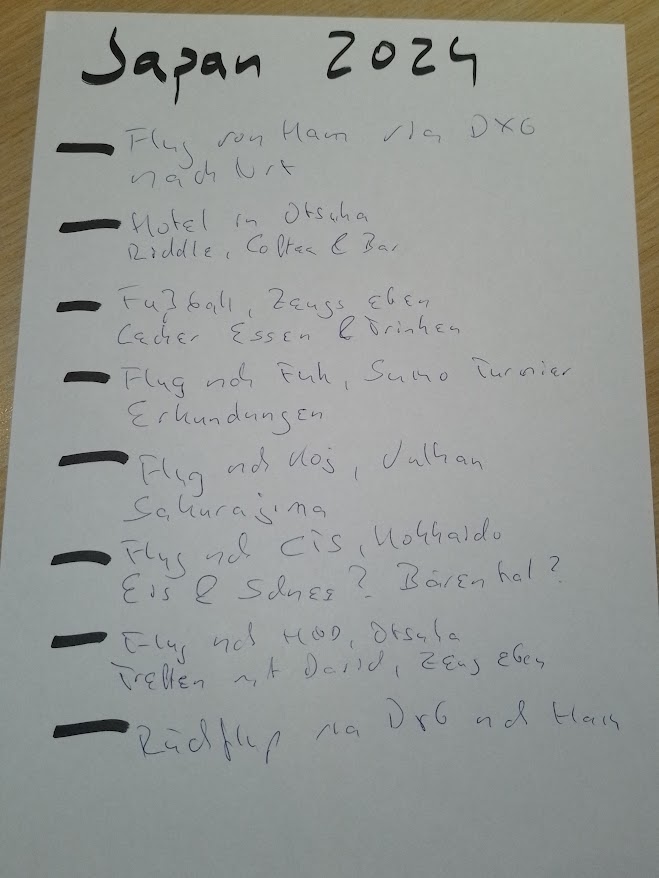 Japan 2024
Flug von Ham via DXB
nach Nrt
Hotel in Otsuka
Riddle, Coffee & Bar
Fußball, Zeugs eben
Lecker Essen & Trinken
Flug nch Fuk, Sumo Turnier
Erkundungen
Flug nch Koj, Vulkan
Sakurajima
Flug nch CTS, Hokkaido
Eis & Schnee? Bärenkal?
Flug nch HND, Otsuka
Treffen mit David, Zeug eben
Rückflug via DXB nch Ham